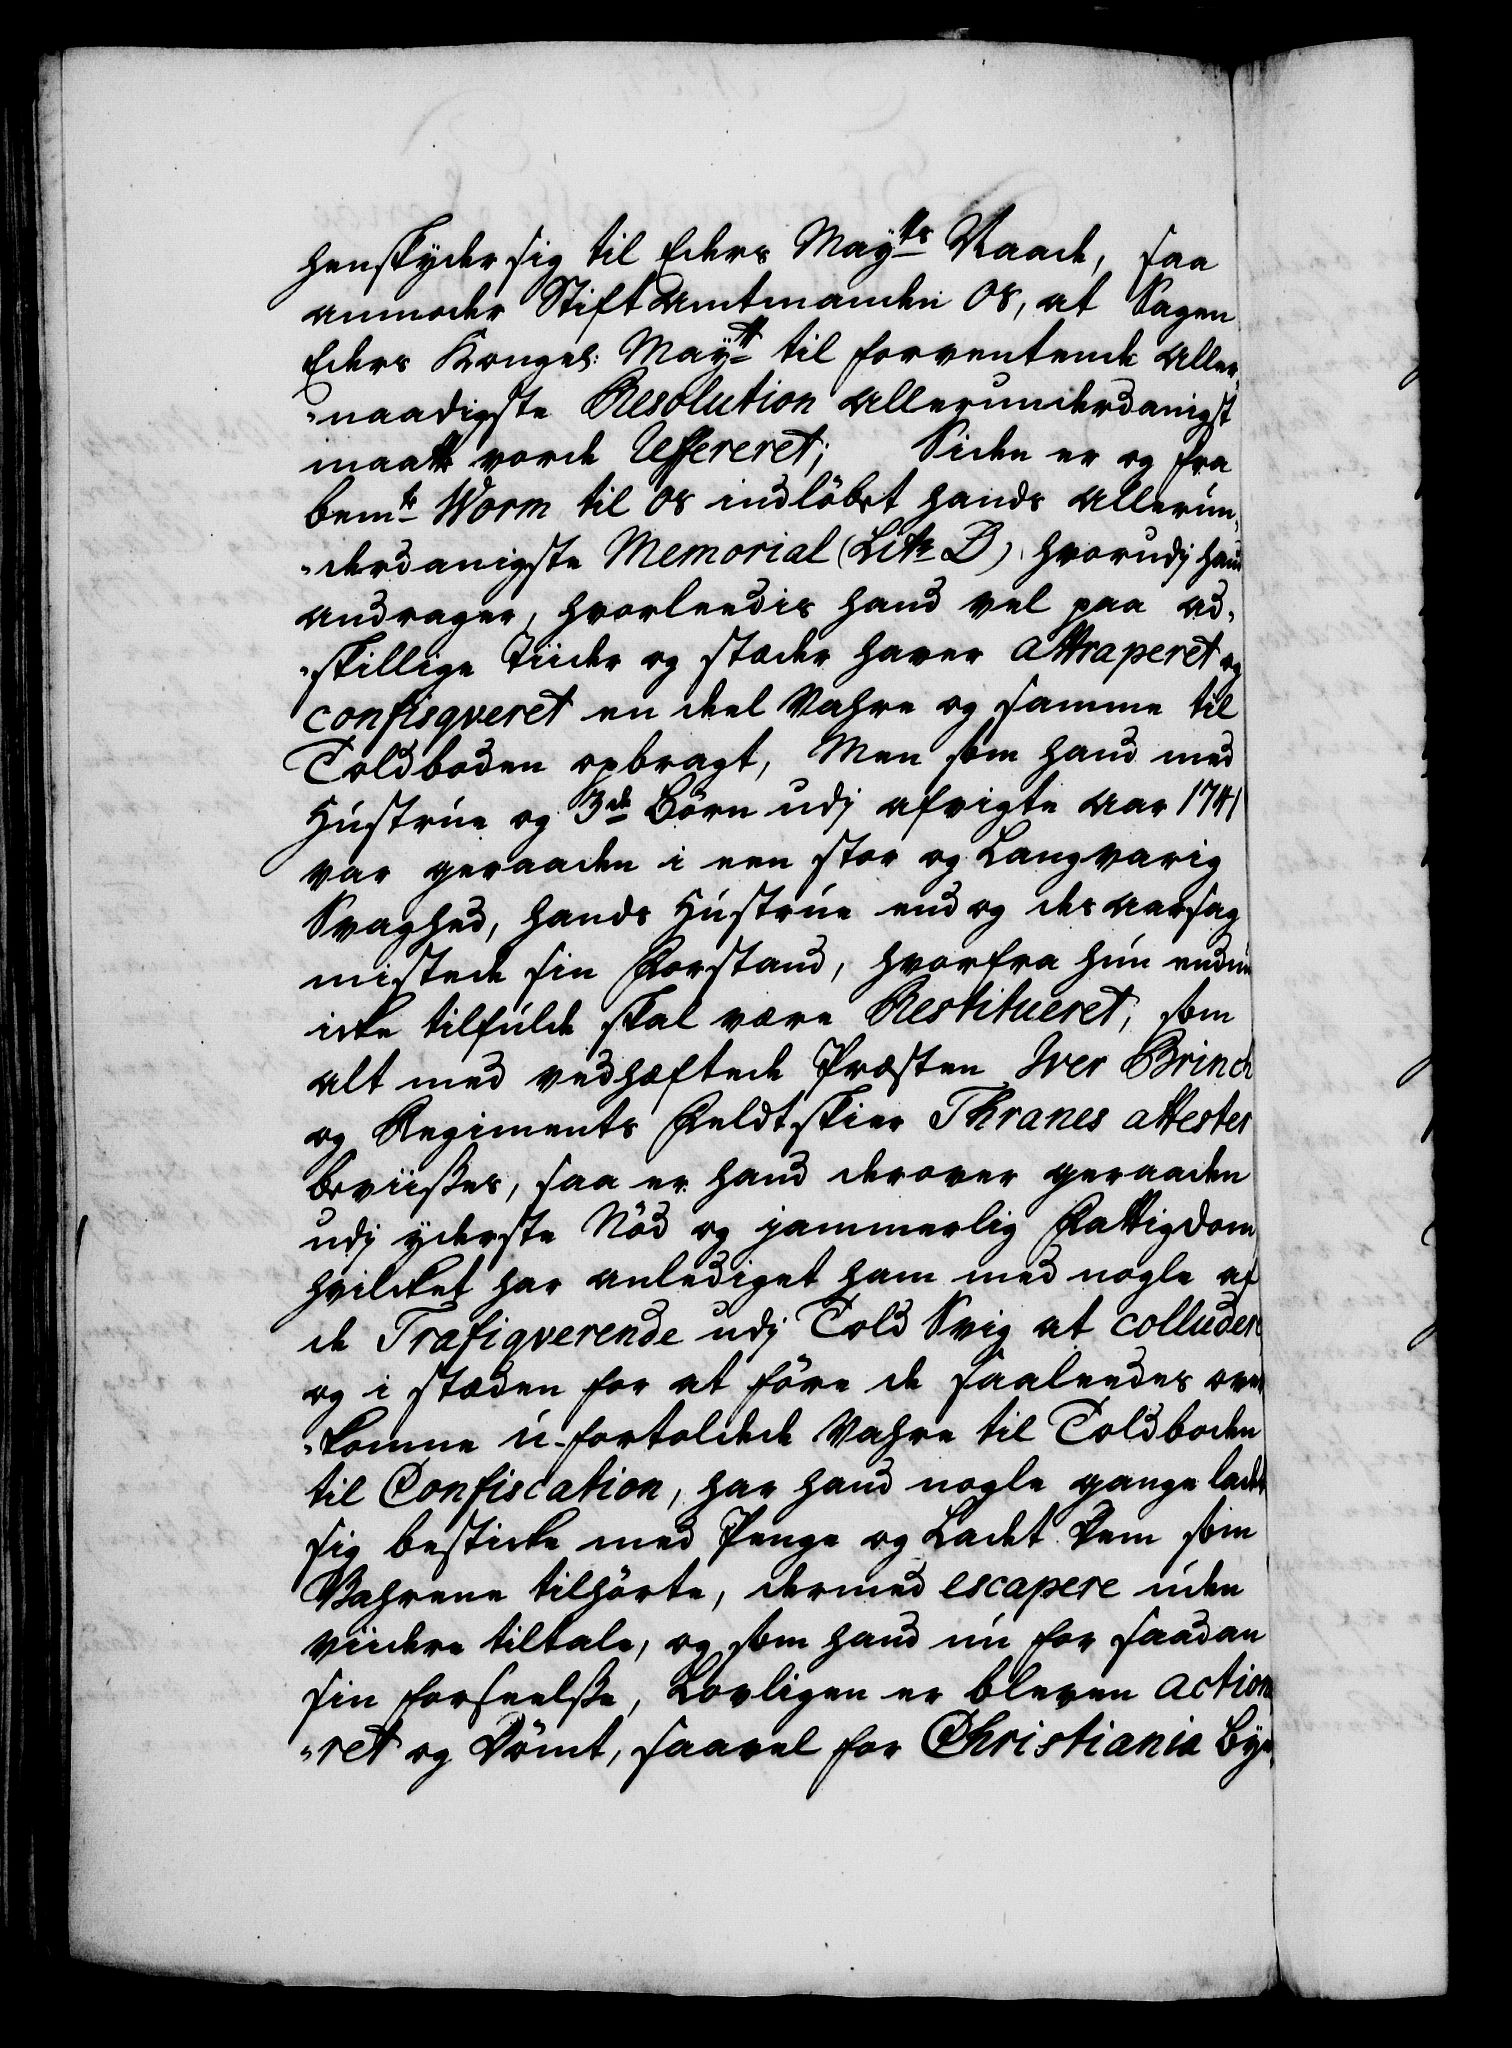 henskyder sig til Eders May.tts Naade, saa
anmoder Stiftamtmanden os, at Sagen
Eders Kongel: May.tt til forventende Aller„
„naadigste Resolution allerunderdanigst
maatte vorde Refereret; Siden er og fra
bem.te Worm til os indlöbet hands allerun„
„derdanigste Memorial (Litr. D) hvorudj hand
andrager, hvorleedis hand vel paa ad„
„skillige tiider og stæder haver attraperet og
confisqveret en deel Vahre og samme til
Toldboden opbragt, Men som hand med
Hustrúe og 3de Börn udj afvigte aar 1741
var geraaden i een stor og Langvarig
Svaghed, hands Hústrúe end og des aarsag
mistede sin Forstand, hvorfra hún endnu
icke tilfulde skal være Restitueret, som
alt med vedhæftede Præsten Iver Brinch
og Regiments Feldtskier Thranes attester
beviises, saa er hand derover geraaden
udj yderste Nöd og jammerlig Fattigdom
hvilcket har anlediget ham med nogle af
de Trafiqverende udj Told Svig at colludere
og i stæden for at före de saaleedes over
„komne ú-fortoldede Vahre til Toldboden
til Confiscation, har hand nogle gange ladet
sig besticke med Penge og Ladet dem som
Vahrene tilhörte, dermed escapere úden
viidere tiltale, og som hand nú for saadan
sin forseelse, Lovligen er bleven action„
„ret og Dömt, saavel for Christiania Bye„